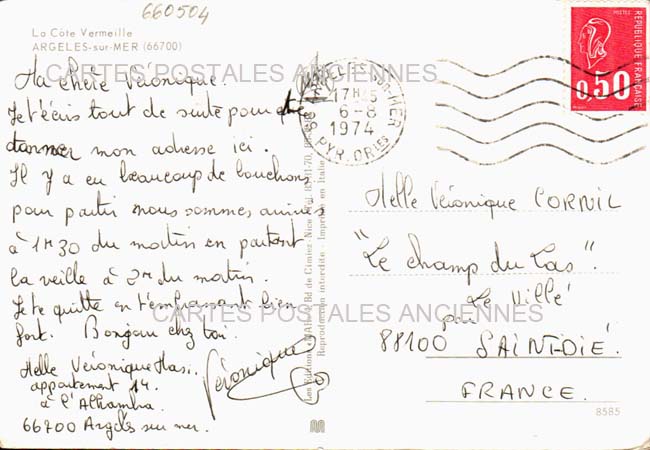 660504
La Côte Vermeille
ARGELES-sur-MER (66700)
CARTES POSTALES ANCIENNES
Ma chère Véronique.
Je t'écris tout de suite pour te
donner mon adresse ici.
Il y a eu beaucoup de bouchons
pour partir nous sommes arrivés
à 1H30 du matin en partant
la veille à 2H du matin.
Je te quitte en t'embrassant bien
fort. Bonjour chez toi.
Véronique
Melle Véronique Hasi.
appartement 14.
à l'Alhambra
66700 Argelès sur mer.
ARGELES-sur-MER
17H15
6-8
1974
PYR. ORIES
POSTES
REPUBLIQUE FRANÇAISE
0,50
Melle Véronique CORNIL
"Le champ du Cas".
Le Villé
par
88100 SAINT-DIÉ.
FRANCE.
CARTES POSTALES ANCIENNES
8585
Reproduction interdite. Imprimé en Italie